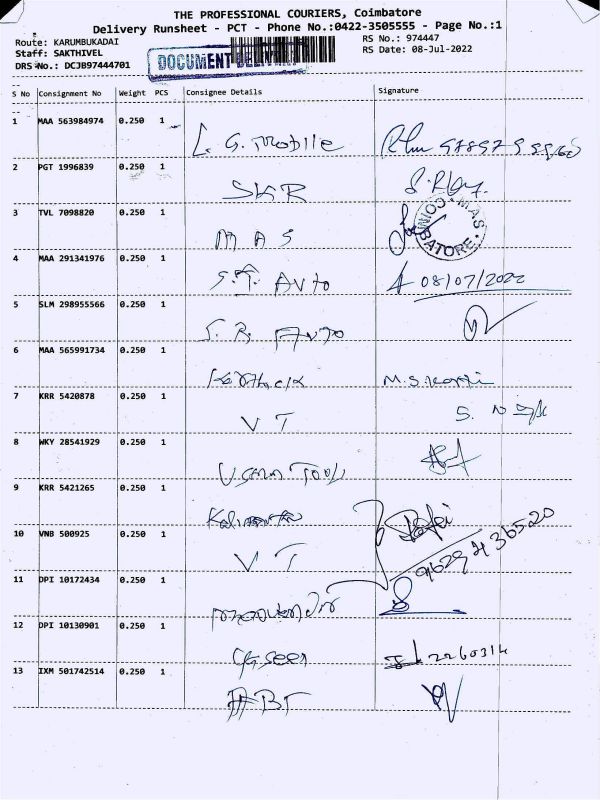 THE PROFESSIONAL COURIERS, Coimbatore
Delivery Runsheet - PCT - Phone No.:0422-3505555 - Page No.:1
Route: KARUMBUKADAI
RS No.: 974447
Staff: SAKTHIVEL
RS Date: 08-Jul-2022
DRS No.: DCJB97444701
DOCUMENT DELIVERY
S No Consignment No Weight PCS Consignee Details Signature
1 MAA 563984974 0.250 1
L. G. Mobile
2 PGT 1996839 0.250 1
SKR
3 TVL 7098820 0.250 1
MAS
MAS COIMBATORE
4 MAA 291341976 0.250 1
S.T. Auto 08/07/2022
5 SLM 298955566 0.250 1
S. R. Auto
6 MAA 565991734 0.250 1
Karthick M.S.
7 KRR 5420878 0.250 1
VT S.
8 WKY 28541929 0.250 1
9 KRR 5421265 0.250 1
10 VNB 500925 0.250 1
VT 9629436520
11 DPI 10172434 0.250 1
12 DPI 10130901 0.250 1
2260314
13 IXM 501742514 0.250 1
ABT